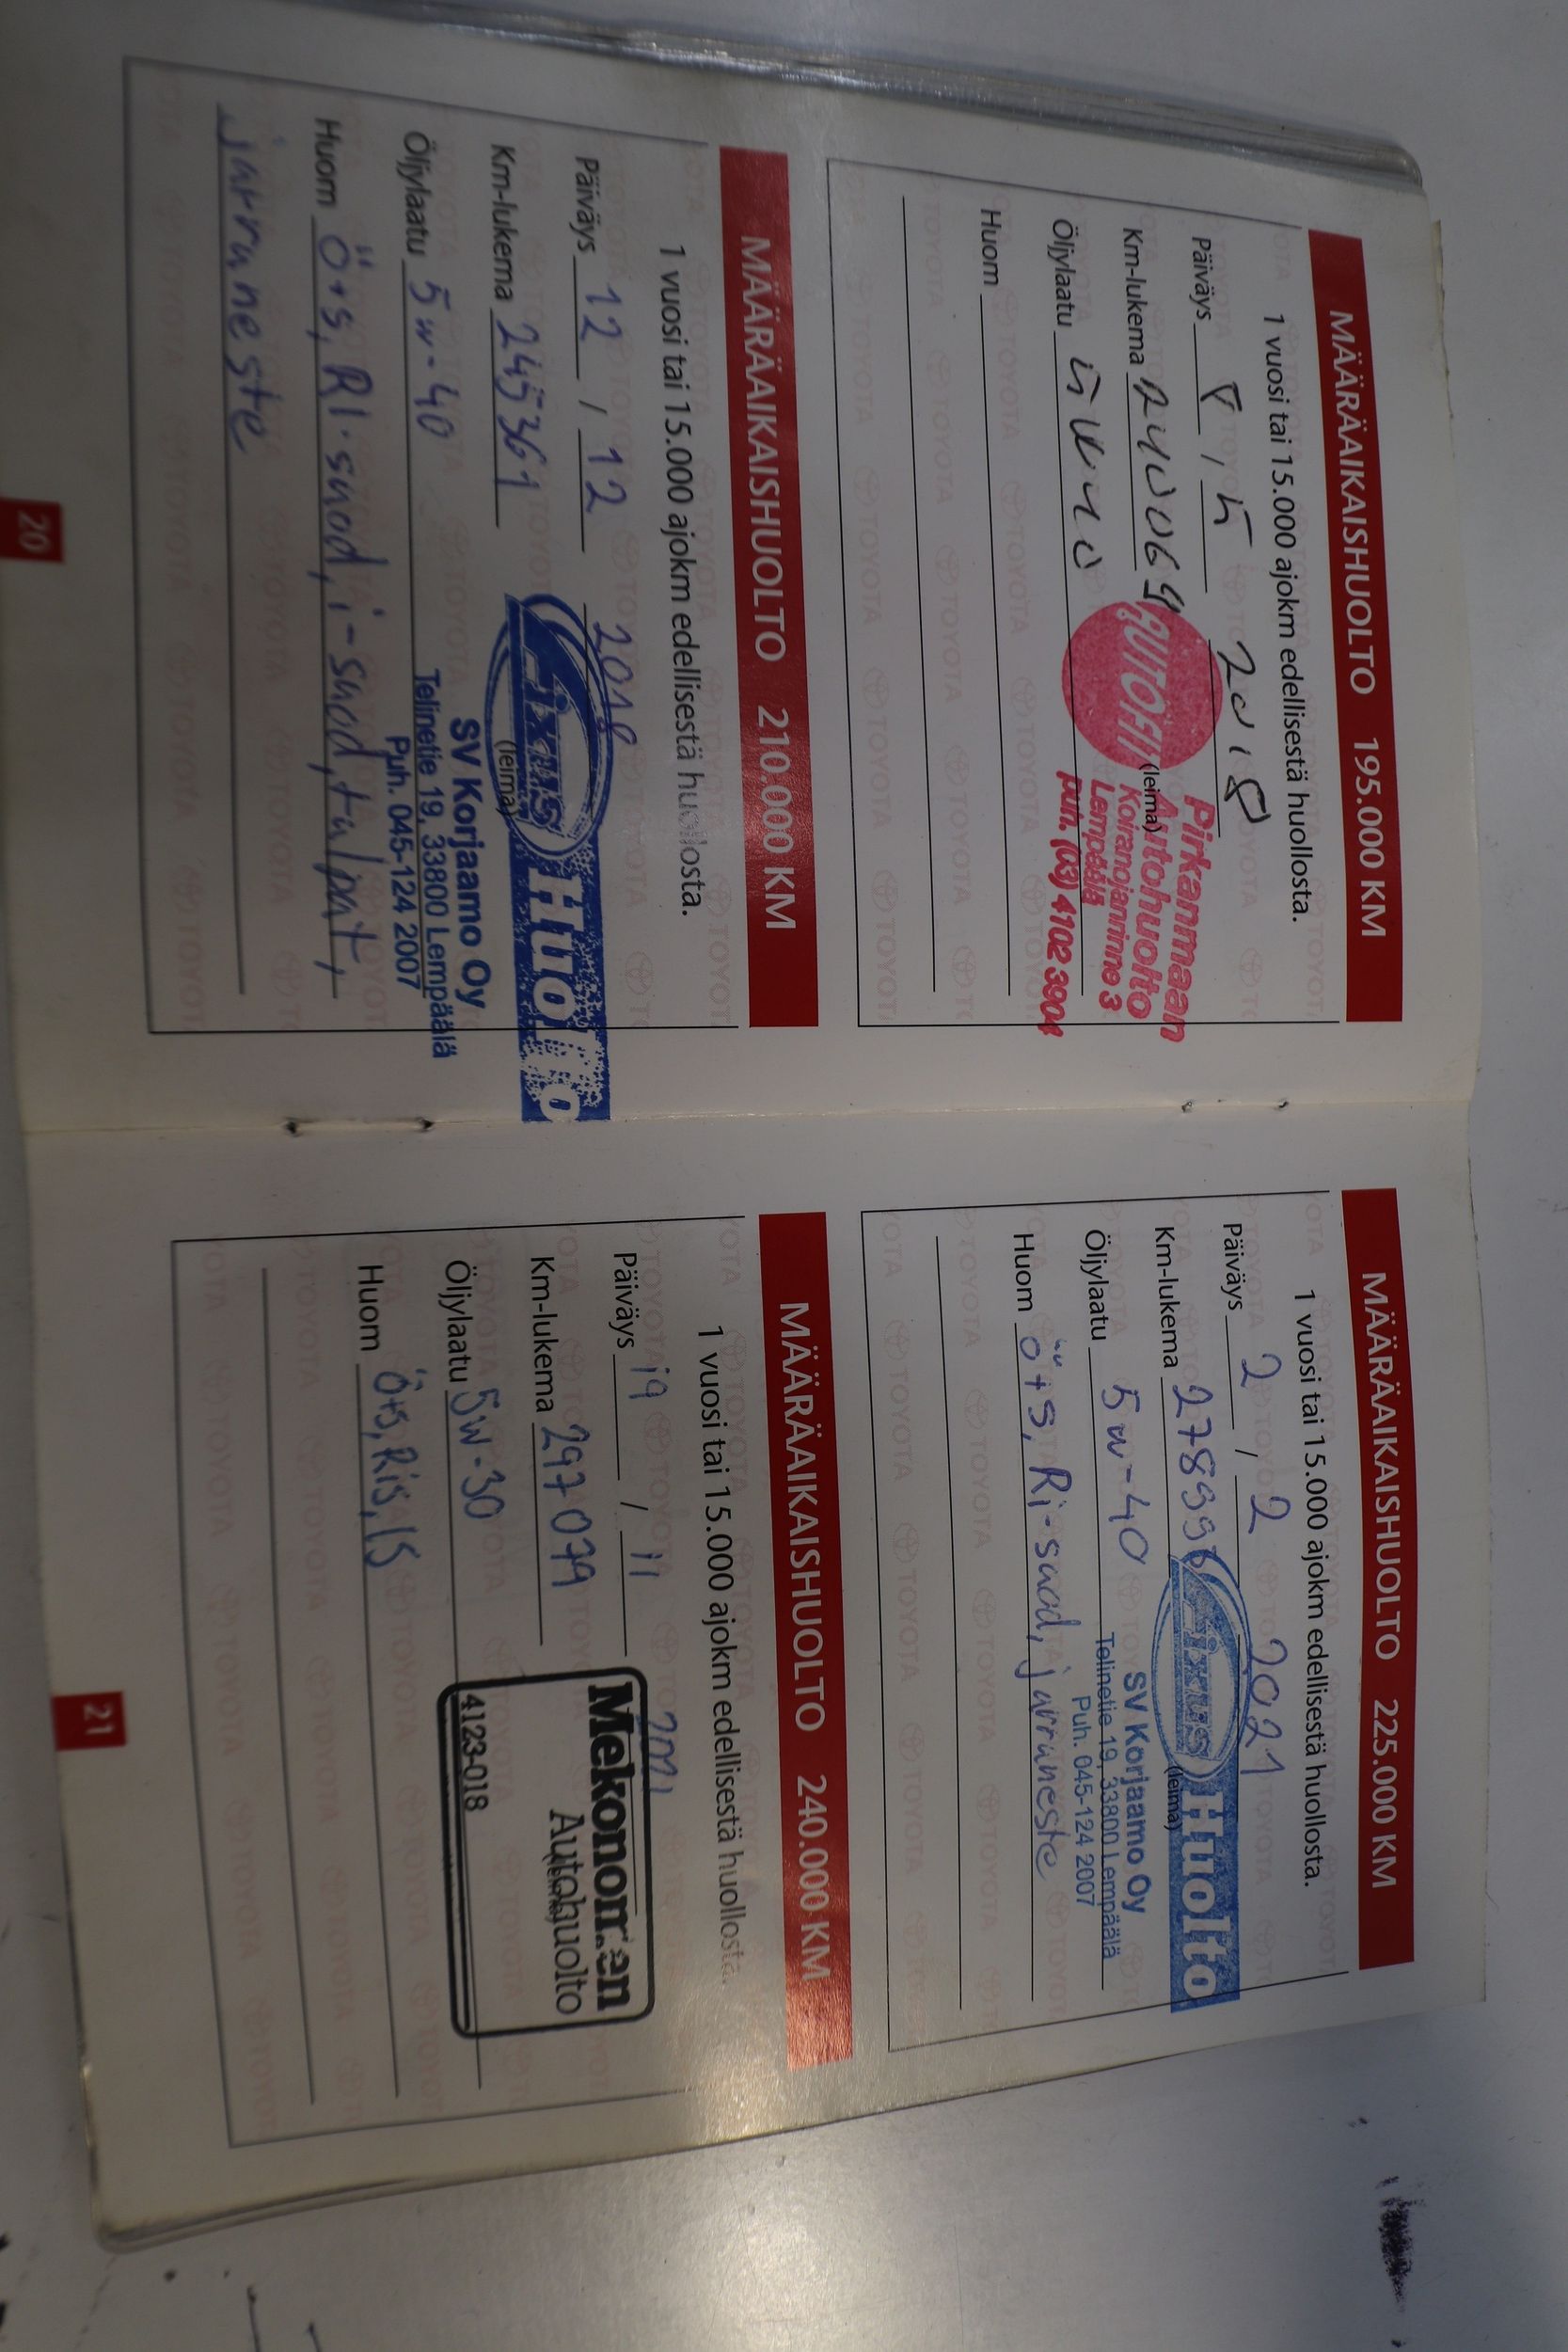 MÄÄRÄAIKAISHUOLTO 195.000 KM
1 vuosi tai 15.000 ajokm edellisestä huollosta.
Päiväys 8 / 5 2018
Km-lukema
Öljylaatu 5W40
(leima)
Huom
AUTOFIT
Pirkanmaan
Autohuolto
Koiranojanrinne 3
Lempäälä
puh. (03) 4102 3904
MÄÄRÄAIKAISHUOLTO 210.000 KM
1 vuosi tai 15.000 ajokm edellisestä huollosta.
Päiväys 12 / 12 2018
Km-lukema 245361
Öljylaatu 5w-40
(leima)
Huom Ö+s, RI-suod, i-suod, tulpat,
jarruneste
Fixus Huolto
SV Korjaamo Oy
Telinetie 19, 33800 Lempäälä
Puh. 045-124 2007
20
MÄÄRÄAIKAISHUOLTO 225.000 KM
1 vuosi tai 15.000 ajokm edellisestä huollosta.
Päiväys 2 / 2 2021
Km-lukema
Öljylaatu 5w-40
(leima)
Huom ö+s, Ri-suod, jarruneste
Fixus Huolto
SV Korjaamo Oy
Telinetie 19, 33800 Lempäälä
Puh. 045-124 2007
MÄÄRÄAIKAISHUOLTO 240.000 KM
1 vuosi tai 15.000 ajokm edellisestä huollosta.
Päiväys 19 / 11
Km-lukema 297079
Öljylaatu 5W-30
Huom Ö+s, Ris, IS
Mekonomen
Autohuolto
4123-018
21